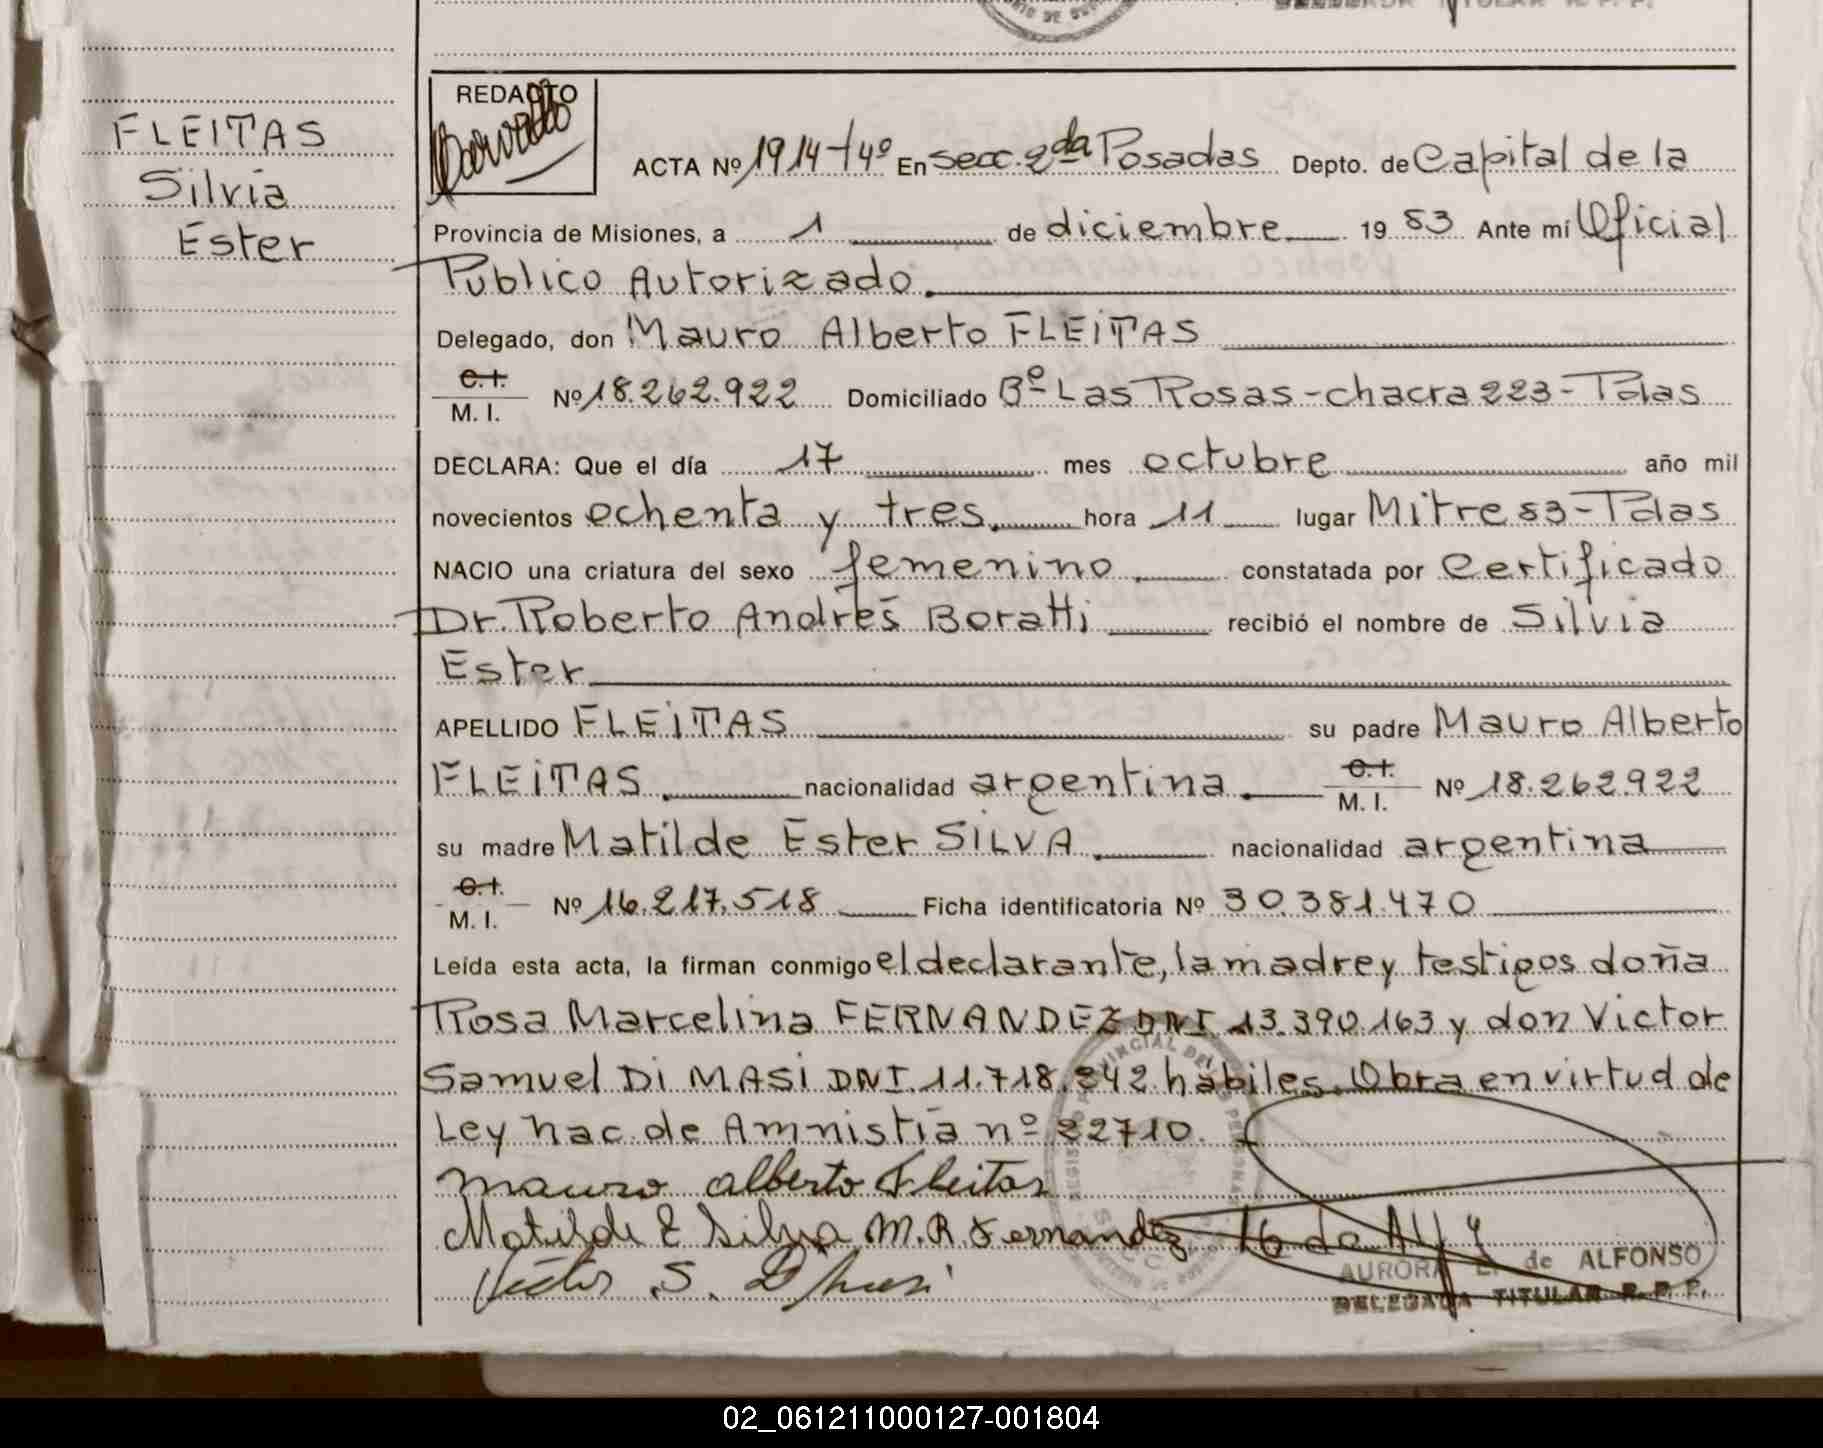 DELEGADA TITULAR R. P. P.
FLEITAS
Silvia
Ester
REDACTO
ACTA Nº 1914-t4º En Secc. 2da Posadas Depto. de Capital de la
Provincia de Misiones, a 1 de diciembre 19 83 Ante mí Oficial
Público Autorizado.
Delegado, don Mauro Alberto FLEITAS
C.I.
M. I. Nº 18.262.922 Domiciliado Bº Las Rosas - chacra 223 - Pdas
DECLARA: Que el día 17 mes octubre año mil
novecientos ochenta y tres. hora 11 lugar Mitre 83 - Pdas
NACIO una criatura del sexo femenino constatada por Certificado
Dr. Roberto Andrés Boratti recibió el nombre de Silvia
Ester
APELLIDO FLEITAS su padre Mauro Alberto
FLEITAS. nacionalidad argentina. C.I.
M. I. Nº 18.262.922
su madre Matilde Ester SILVA. nacionalidad argentina
C.I.
M. I. Nº 16.217.518 Ficha identificatoria Nº 30.381.470
Leída esta acta, la firman conmigo el declarante, la madre y testigos doña
Rosa Marcelina FERNANDEZ DNI 13.390.163 y don Victor
Samuel Di MASI DNI 11.718.242 hábiles. Obra en virtud de
Ley nac. de Amnistía nº 22710.
Mauro Alberto Fleitas
Matilde E Silva M.R. Fernandez
Victor S. Di Masi
AURORA de ALFONSO
DELEGADA TITULAR R. P. P.
02_061211000127-001804